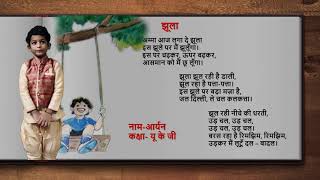 झूला
अम्मा आज लगा दे झूला
इस झूले पर मैं झूलूँगा।
इस पर चढ़कर, ऊपर बढ़कर,
आसमान को मैं छू लूँगा।
झूला झूल रही है डाली,
झूल रहा है पत्ता-पत्ता।
इस झूले पर बड़ा मज़ा है,
चल दिल्ली, ले चल कलकत्ता।
झूल रही नीचे की धरती,
उड़ चल, उड़ चल,
उड़ चल, उड़ चल।
बरस रहा है रिमझिम, रिमझिम,
उड़कर मैं लूटूँ दल - बादल।
नाम-आर्यन
कक्षा- यू के जी